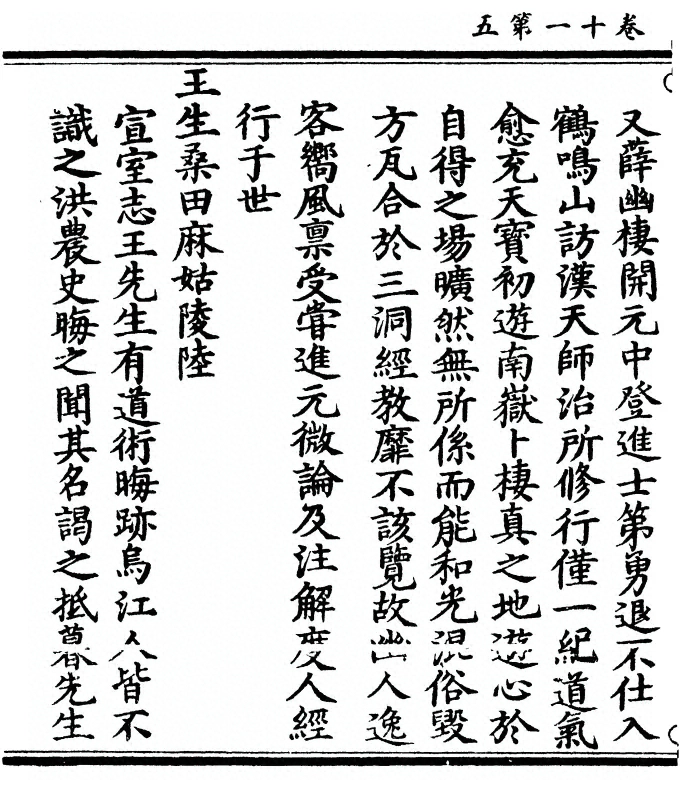 卷十一第五
又薛幽棲開元中登進士第勇退不仕入
鶴鳴山訪漢天師治所修行僅一紀道氣
愈充天寶初遊南嶽卜棲真之地遊心於
自得之場曠然無所係而能和光混俗毀
方瓦合於三洞經教靡不該覽故幽人逸
客嚮風禀受嘗進元微論及注解度人經
行于世
王生桑田麻姑陵陸
宣室志王先生有道術晦跡烏江人皆不
識之洪農史晦之聞其名謁之抵暮先生